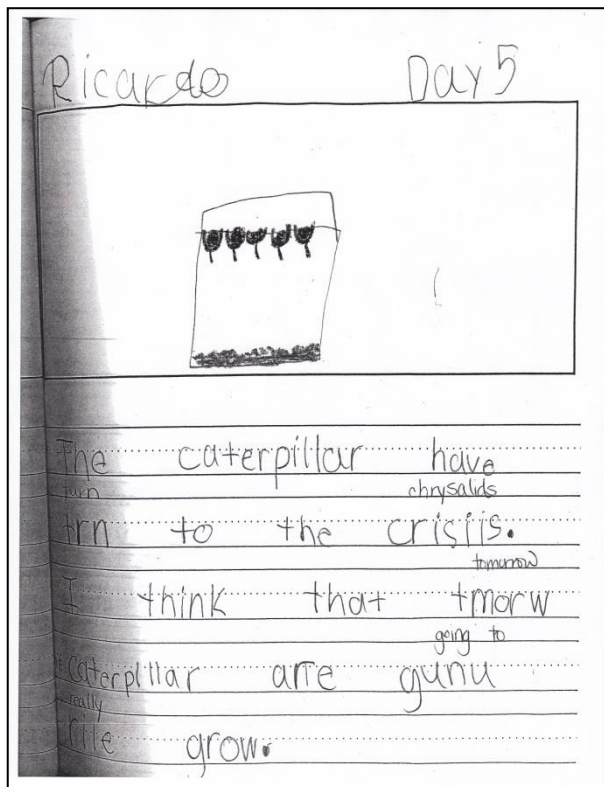 Ricardo Day 5
The caterpillar have
turn chrysalids
trn to the crisiis.
tomorrow
I think that tmorw
going to
caterpillar arre gunu
really
rile grow.